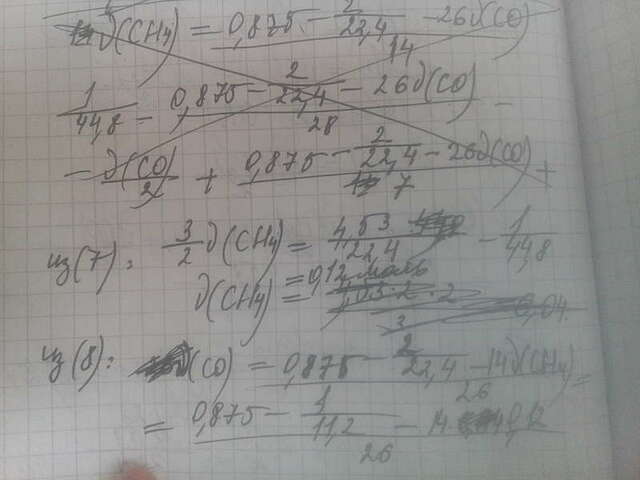 ∂(CH4) = (0,875 - 2/22,4 - 26∂(CO))/14
1/44,8 - (0,875 - 2/22,4 - 26∂(CO))/28 -
- ∂(CO)/2 + (0,875 - 2/22,4 - 26∂(CO))/7 +
из(7): 3/2 ∂(CH4) = 4,53/22,4 - 1/44,8
∂(CH4) = 0,12 моль
из(8): ∂(CO) = (0,875 - 2/22,4 - 14∂(CH4))/26 =
= (0,875 - 1/11,2 - 14 0,12)/26